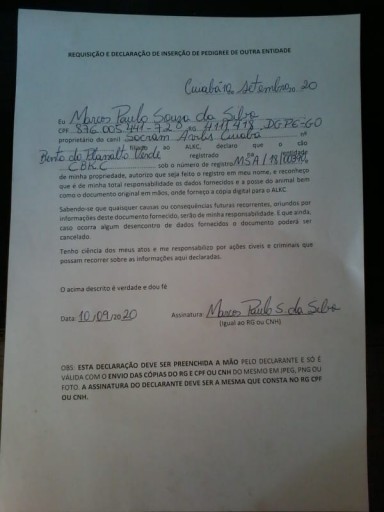 REQUISIÇÃO E DECLARAÇÃO DE INSERÇÃO DE PEDIGREE DE OUTRA ENTIDADE
Cuiabá 10, setembro 20
Eu Marcos Paulo Souza da Silva
CPF 876.005.441-72 RG 4111418 DGPC-GO
proprietário do canil Socram Avilis Cuiabá nº
filiado ao ALKC, declaro que o cão
Bento do Planalto Verde registrado na entidade
CBKC sob o número de registro MSA/18/00790,
de minha propriedade, autorizo que seja feito o registro em meu nome, e reconheço
que é de minha total responsabilidade os dados fornecidos e a posse do animal bem
como o documento original em mãos, onde forneço a cópia digital para o ALKC
Sabendo-se que quaisquer causas ou consequências futuras recorrentes, oriundos por
informações deste documento fornecido, serão de minha responsabilidade. E que ainda,
caso ocorra algum desencontro de dados fornecidos o documento poderá ser
cancelado.
Tenho ciência dos meus atos e me responsabilizo por ações cíveis e criminais que
possam recorrer sobre as informações aqui declaradas.
O acima descrito é verdade e dou fé
Data: 10/09/2020 Assinatura: Marcos Paulo S. da Silva
(igual ao RG ou CNH)
OBS: ESTA DECLARAÇÃO DEVE SER PREENCHIDA A MÃO PELO DECLARANTE E SÓ É
VÁLIDA COM O ENVIO DAS CÓPIAS DO RG E CPF OU CNH DO MESMO EM JPEG, PNG OU
FOTO. A ASSINATURA DO DECLARANTE DEVE SER A MESMA QUE CONSTA NO RG CPF
OU CNH.